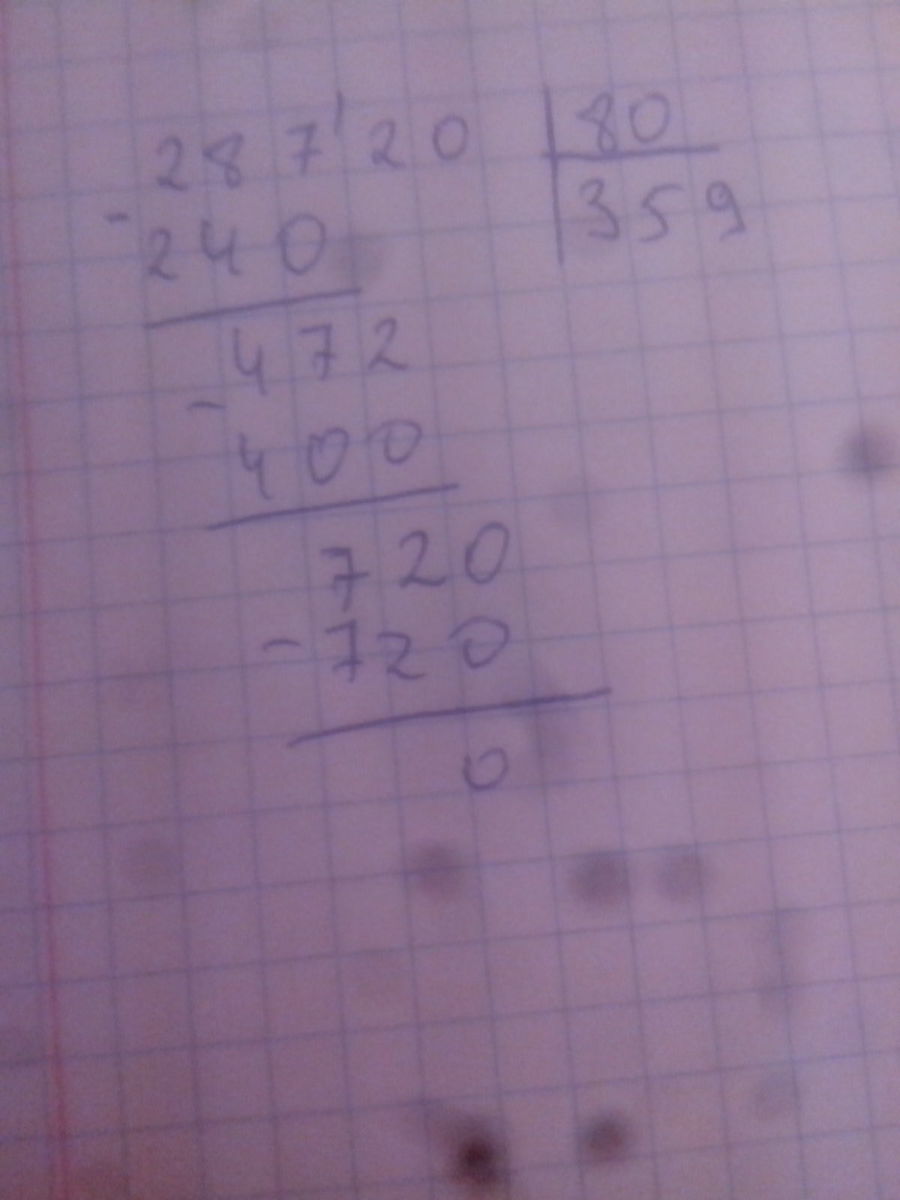 287'20 80
- 359
240
472
-
400
720
-720
0